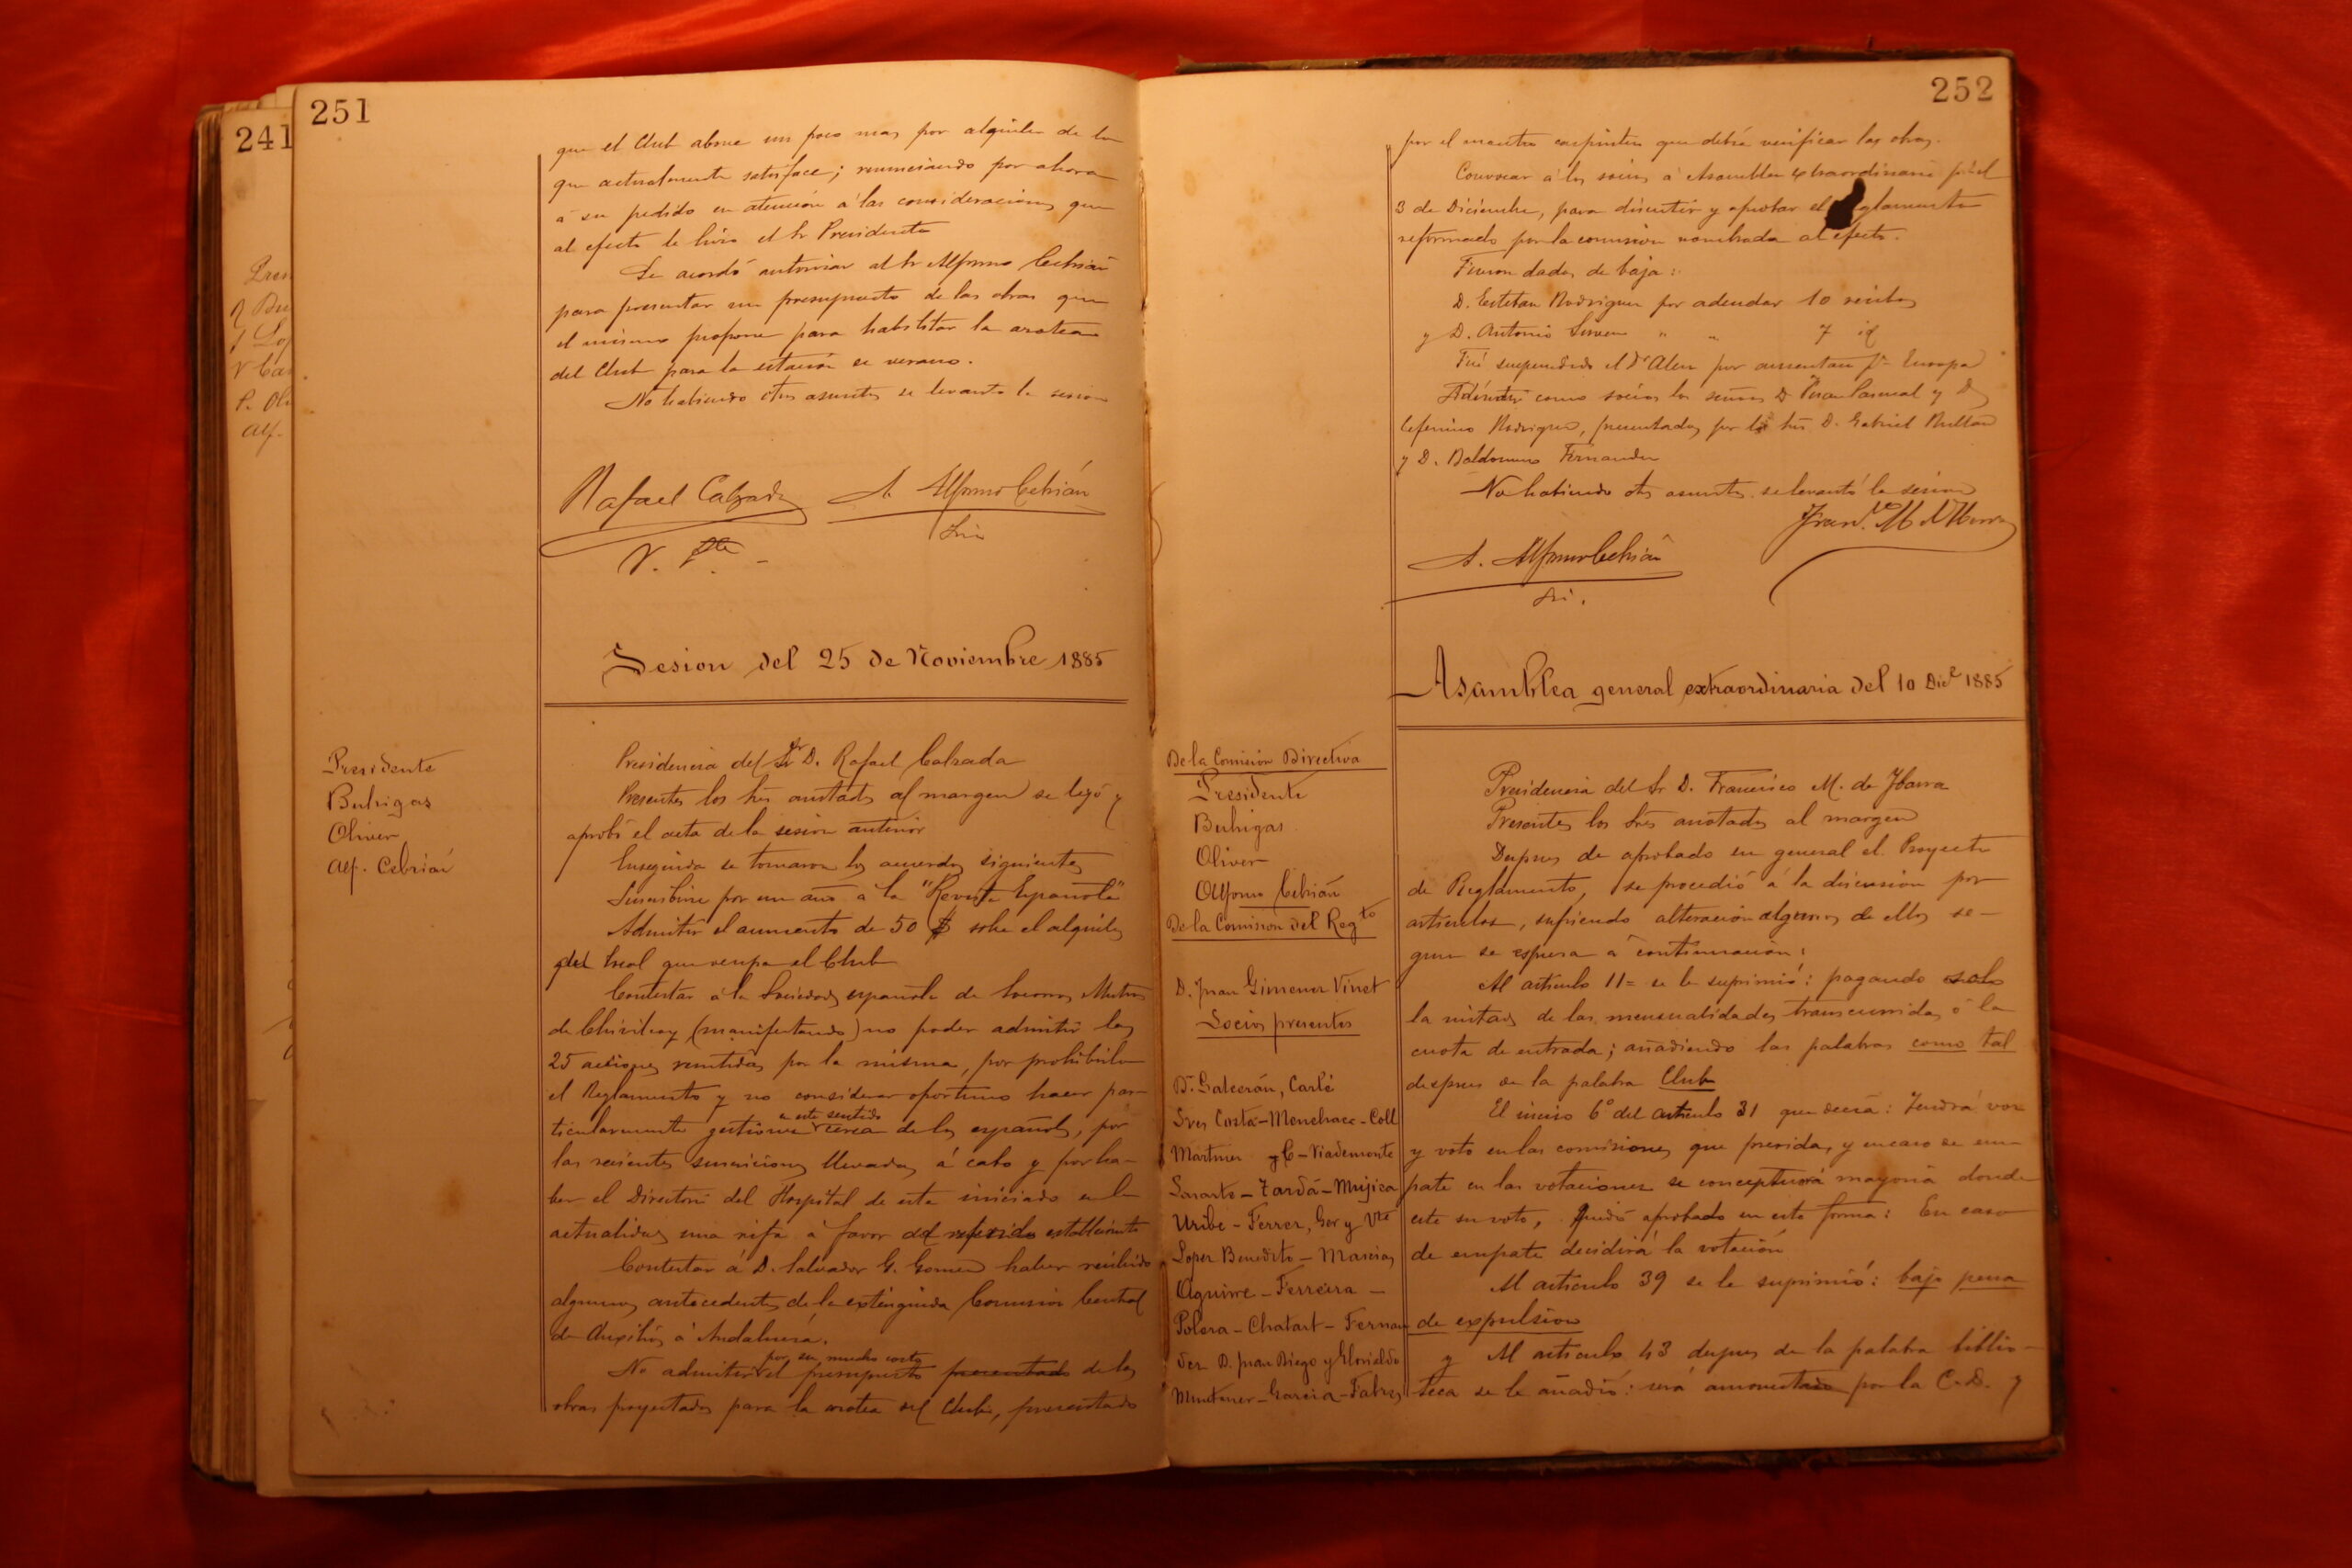 251
que el Club abone un poco mas por alquiler de lo
que actualmente satisface; renunciando por ahora
á su pedido en atencion á las consideraciones que
al efecto le hizo el Sr Presidente
Se acordó autorizar al Sr Alfonso Cebrián
para presentar un presupuesto de las obras que
el mismo propone para habilitar la azotea
del Club para la estación de verano.
No habiendo otros asuntos se levantó la sesion
Rafael Calzada A. Alfonso Cebrián
V. Pte Srio
Sesion del 25 de Noviembre 1885
Presidente
Buhigas
Oliver
Alf. Cebrián
Presidencia del Sr D. Rafael Calzada
Presentes los Sres anotados al margen se leyó y
aprobó el acta de la sesion anterior
Enseguida se tomaron los acuerdos siguientes
Suscribirse por un año á la "Revista Española"
Admitir el aumento de 50 $ sobre el alquiler
del local que ocupa el Club
Contestar á la Sociedad española de Socorros Mutuos
de Chivilcoy (manifestando) no poder admitir las
25 acciones remitidas por la misma, por prohibirlo
el Reglamento y no considerar oportuno hacer par-
ticularmente gestiones en este sentido cerca de los españoles, por
las recientes suscriciones llevadas á cabo y por ha-
ber el Directorio del Hospital de esta iniciado en la
actualidad una rifa á favor del referido establecimiento
Contestar á D. Salvador G. Gomez haber recibido
algunos antecedentes de la extinguida Comision Central
de Auxilios á Andalucía.
No admitir por su mucho costo el presupuesto presentado de las
obras proyectadas para la azotea del Club, presentado
252
por el maestro carpintero que debía verificar las obras.
Convocar á los socios á Asamblea extraordinaria pa el
3 de Diciembre, para discutir y aprobar el glamento
reformado por la comision nombrada al efecto.
Fueron dados de baja:
D. Esteban Rodriguez por adeudar 10 recibos
y D. Antonio " " 7 id
Fué suspendido el Dr Alen por ausentarse pa Europa
Admitir como socios los señores D Juan Pascual y D
Ceferino Rodriguez, presentados por los Sres D. Gabriel
y D. Baldomero Fernandez
No habiendo otros asuntos se levantó la sesion
A. Alfonso Cebrián
Sri.
Asamblea general extraordinaria del 10 Dice 1885
De la Comision Directiva
Presidente
Buhigas
Oliver
Alfonso Cebrián
De la Comision del Regto
D. Juan Gimenez Vinet
Socios presentes
Dr Galcerán, Carlé
Sres Costa - Menchaca - Coll
Martinez y C - Viademonte
Lasarte - Tardá - Mujica
Uribe - Ferrer, Gor y Vte
Lopez Benedito - Macias
Aguirre - Ferreira -
Polera - Chatart - Fernan
dez D. Juan Diego y Elorialdo
Muntaner - Garcia - Fabres
Presidencia del Sr D. Francisco M. de Ybarra
Presentes los Sres anotados al margen
Despues de aprobado en general el Proyecto
de Reglamento, se procedió á la discusion por
articulos, sufriendo alteración algunos de ellos se-
gun se espresa á continuacion:
Al articulo 11= se le suprimió: pagando solo
la mitad de las mensualidades transcurridas ó la
cuota de entrada; añadiendo las palabras como tal
despues de la palabra Club
El inciso 6º del articulo 31 que decia: Tendrá voz
y voto en las comisiones que presida, y en caso de em-
pate en las votaciones se conceptuará mayoria donde
este su voto, quedó aprobado en esta forma: En caso
de empate decidirá la votación
Al articulo 39 se le suprimió: bajo pena
de expulsion
y Al articulo 43 despues de la palabra biblio-
teca se le añadió: será aumentada por la C.D. y
241